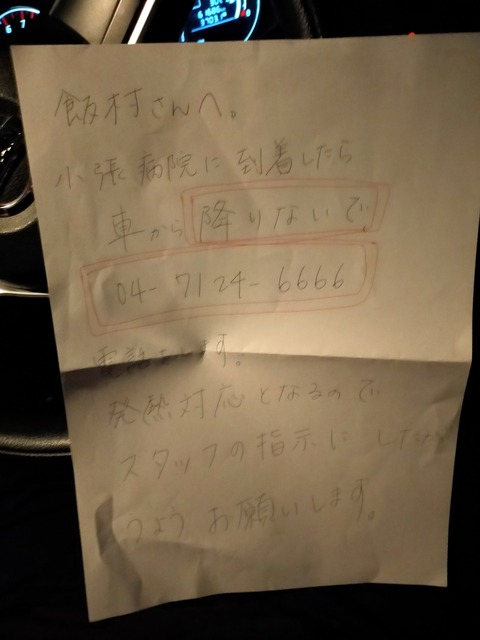 飯村さんへ。
小張病院に到着したら
車から降りないで
04-7124-6666
電話します。
発熱対応となるので
スタッフの指示にしたが
うよう お願いします。